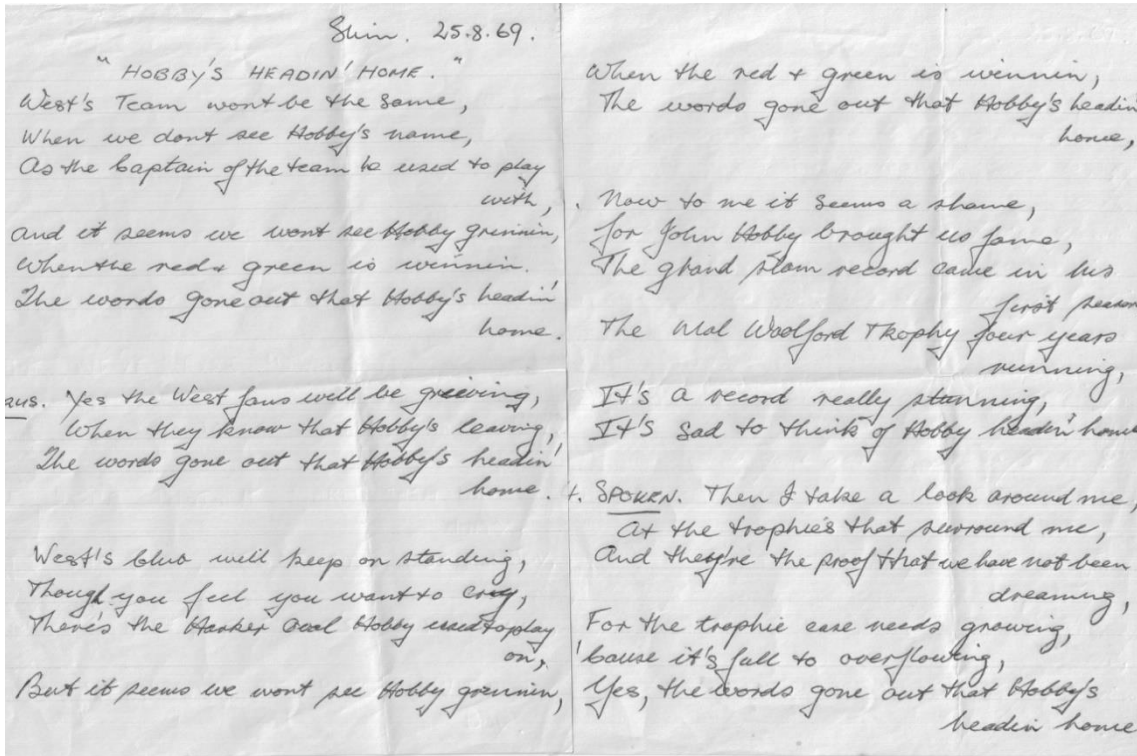 Slim. 25.8.69.
"HOBBY'S HEADIN' HOME."
West's Team wont be the same,
When we dont see Hobby's name,
As the Captain of the team he used to play
with,
And it seems we wont see Hobby grinnin,
When the red & green is winnin.
The words gone out that Hobby's headin'
home.
Yes the West fans will be grieving,
When they know that Hobby's leaving,
The words gone out that Hobby's headin'
home.
West's Club will keep on standing,
Though you feel you want to cry,
There's the Harker Oval Hobby used to play
on,
But it seems we wont see Hobby grinnin,
When the red & green is winnin,
The words gone out that Hobby's headin
home,
Now to me it seems a shame,
for John Hobby brought us fame,
The grand slam record came in his
first season
The Mal Woolford Trophy four years
running,
It's a record really stunning,
It's sad to think of Hobby headin' home
4. SPOKEN. Then I take a look around me,
At the trophies that surround me,
And they're the proof that we have not been
dreaming,
For the trophie case needs growing,
'Cause it's full to overflowing,
Yes, the words gone out that Hobby's
headin home